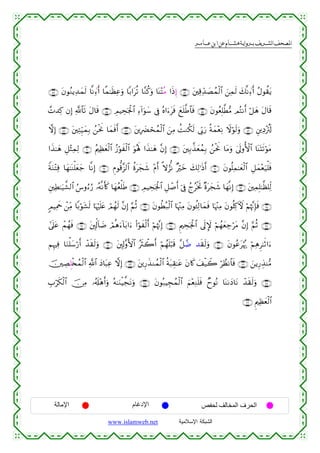 المصحف الشريف برواية هشام عن ابن عامر
يَقُولُ أَءِنَّكَ لَمِنَ ٱلْمُصَدِّقِينَ ۝ إِذَا مِتْنَا وَكُنَّا تُرَابًا وَعِظَٰمًا أَءِنَّا لَمَدِينُونَ ۝
قَالَ هَلْ أَنتُم مُّطَّلِعُونَ ۝ فَٱطَّلَعَ فَرَءَاهُ فِى سَوَآءِ ٱلْجَحِيمِ ۝ قَالَ تَٱللَّهِ إِن كِدتَّ
لَتُرْدِينِ ۝ وَلَوْلَا نِعْمَةُ رَبِّى لَكُنتُ مِنَ ٱلْمُحْضَرِينَ ۝ أَفَمَا نَحْنُ بِمَيِّتِينَ ۝ إِلَّا
مَوْتَتَنَا ٱلْأُولَىٰ وَمَا نَحْنُ بِمُعَذَّبِينَ ۝ إِنَّ هَٰذَا لَهُوَ ٱلْفَوْزُ ٱلْعَظِيمُ ۝ لِمِثْلِ هَٰذَا
فَلْيَعْمَلِ ٱلْعَٰمِلُونَ ۝ أَذَٰلِكَ خَيْرٌ نُّزُلًا أَمْ شَجَرَةُ ٱلزَّقُّومِ ۝ إِنَّا جَعَلْنَٰهَا فِتْنَةً
لِّلظَّٰلِمِينَ ۝ إِنَّهَا شَجَرَةٌ تَخْرُجُ فِىٓ أَصْلِ ٱلْجَحِيمِ ۝ طَلْعُهَا كَأَنَّهُۥ رُءُوسُ ٱلشَّيَٰطِينِ
۝ فَإِنَّهُمْ لَءَاكِلُونَ مِنْهَا فَمَالِـُٔونَ مِنْهَا ٱلْبُطُونَ ۝ ثُمَّ إِنَّ لَهُمْ عَلَيْهَا لَشَوْبًا مِّنْ حَمِيمٍ
۝ ثُمَّ إِنَّ مَرْجِعَهُمْ لَإِلَى ٱلْجَحِيمِ ۝ إِنَّهُمْ أَلْفَوْا۟ ءَابَآءَهُمْ ضَآلِّينَ ۝ فَهُمْ عَلَىٰٓ
ءَاثَٰرِهِمْ يُهْرَعُونَ ۝ وَلَقَد ضَّلَّ قَبْلَهُمْ أَكْثَرُ ٱلْأَوَّلِينَ ۝ وَلَقَدْ أَرْسَلْنَا فِيهِم
مُّنذِرِينَ ۝ فَٱنظُرْ كَيْفَ كَانَ عَٰقِبَةُ ٱلْمُنذَرِينَ ۝ إِلَّا عِبَادَ ٱللَّهِ ٱلْمُخْلِصِينَ
۝ وَلَقَدْ نَادَىٰنَا نُوحٌ فَلَنِعْمَ ٱلْمُجِيبُونَ ۝ وَنَجَّيْنَٰهُ وَأَهْلَهُۥ مِنَ ٱلْكَرْبِ
ٱلْعَظِيمِ ۝
الحرف المخالف لحفص
الإدغام
الإمالة
الشبكة الإسلامية www.islamweb.net